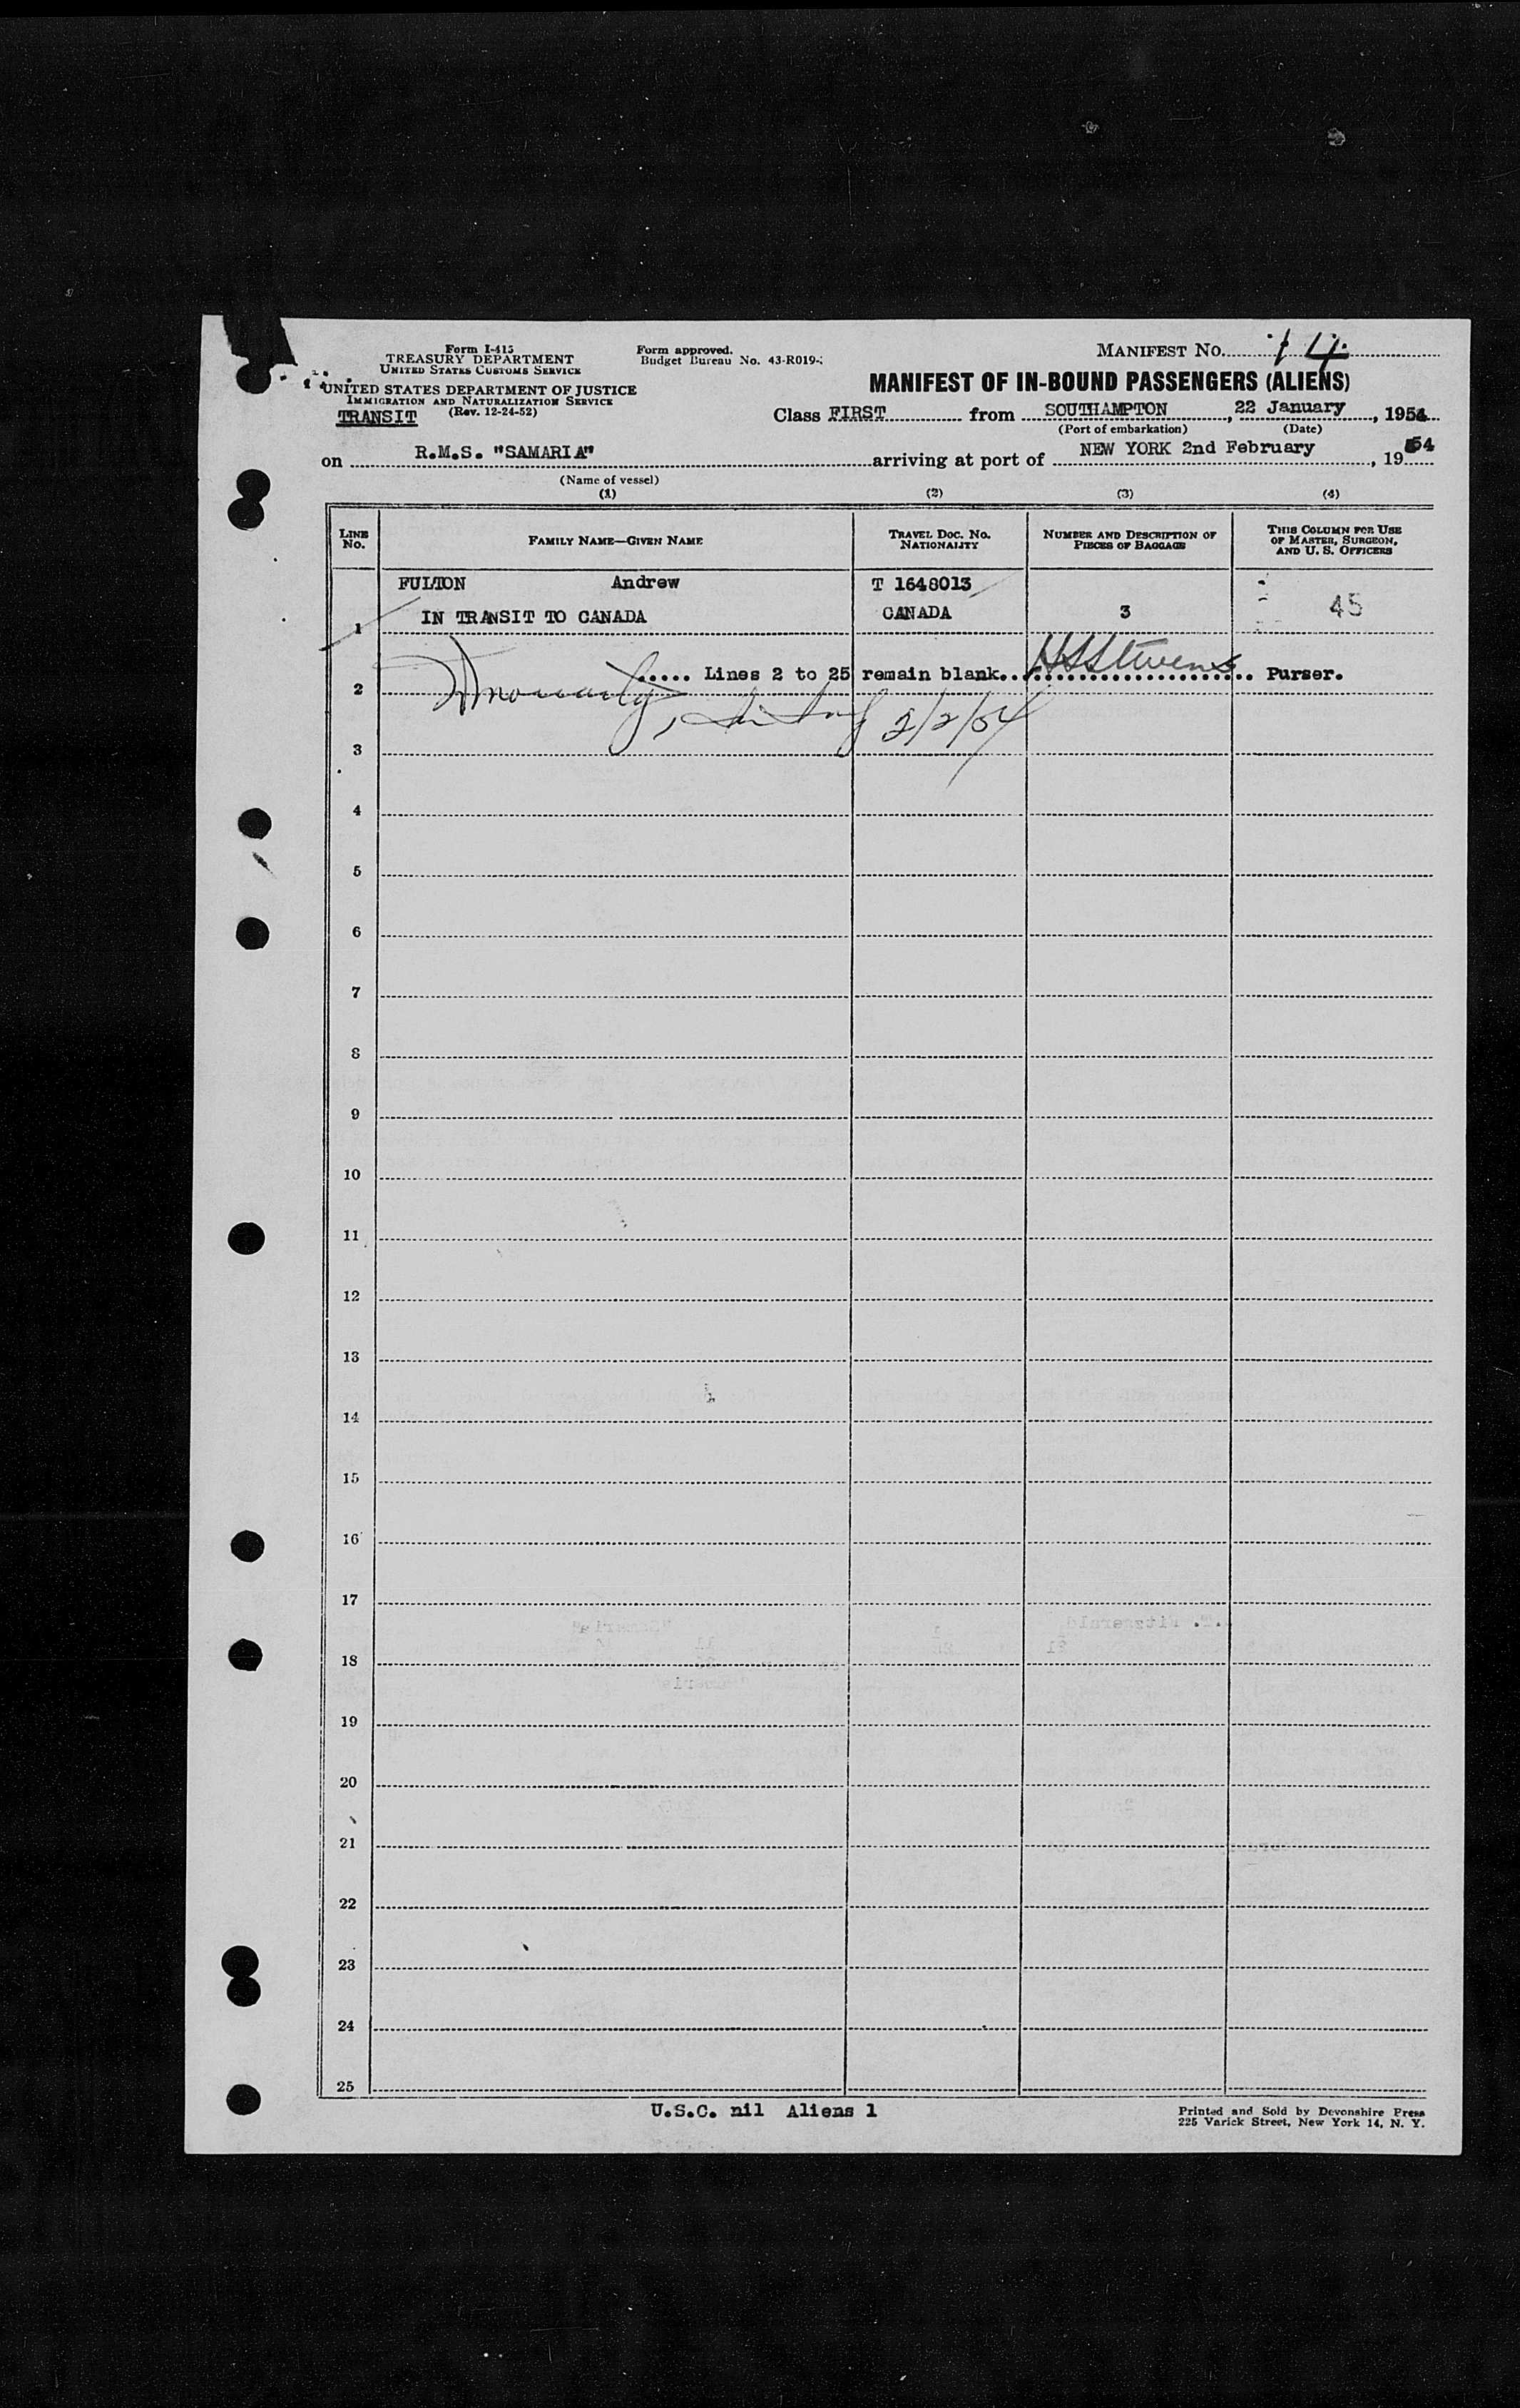 Form I-415
TREASURY DEPARTMENT
UNITED STATES CUSTOMS SERVICE
UNITED STATES DEPARTMENT OF JUSTICE
IMMIGRATION AND NATURALIZATION SERVICE
(Rev. 12-24-52)
TRANSIT
Form approved.
Budget Bureau No. 43-R019-
MANIFEST No. 14
MANIFEST OF IN-BOUND PASSENGERS (ALIENS)
Class FIRST from SOUTHAMPTON, 22 January, 1954
(Port of embarkation) (Date)
on R.M.S. "SAMARIA" arriving at port of NEW YORK 2nd February, 1954
(Name of vessel)
(1) (2) (3) (4)
LINE No. FAMILY NAME—GIVEN NAME TRAVEL DOC. NO. NATIONALITY NUMBER AND DESCRIPTION OF PIECES OF BAGGAGE THIS COLUMN FOR USE OF MASTER, SURGEON, AND U. S. OFFICERS
FULTON Andrew T 1648013
1 IN TRANSIT TO CANADA CANADA 3 45
..... Lines 2 to 25 remain blank... HSStevens .. Purser.
2
2/2/54
3
4
5
6
7
8
9
10
11
12
13
14
15
16
17
18
19
20
21
22
23
24
25
U.S.C. nil Aliens 1
Printed and Sold by Devonshire Press
225 Varick Street, New York 14, N. Y.